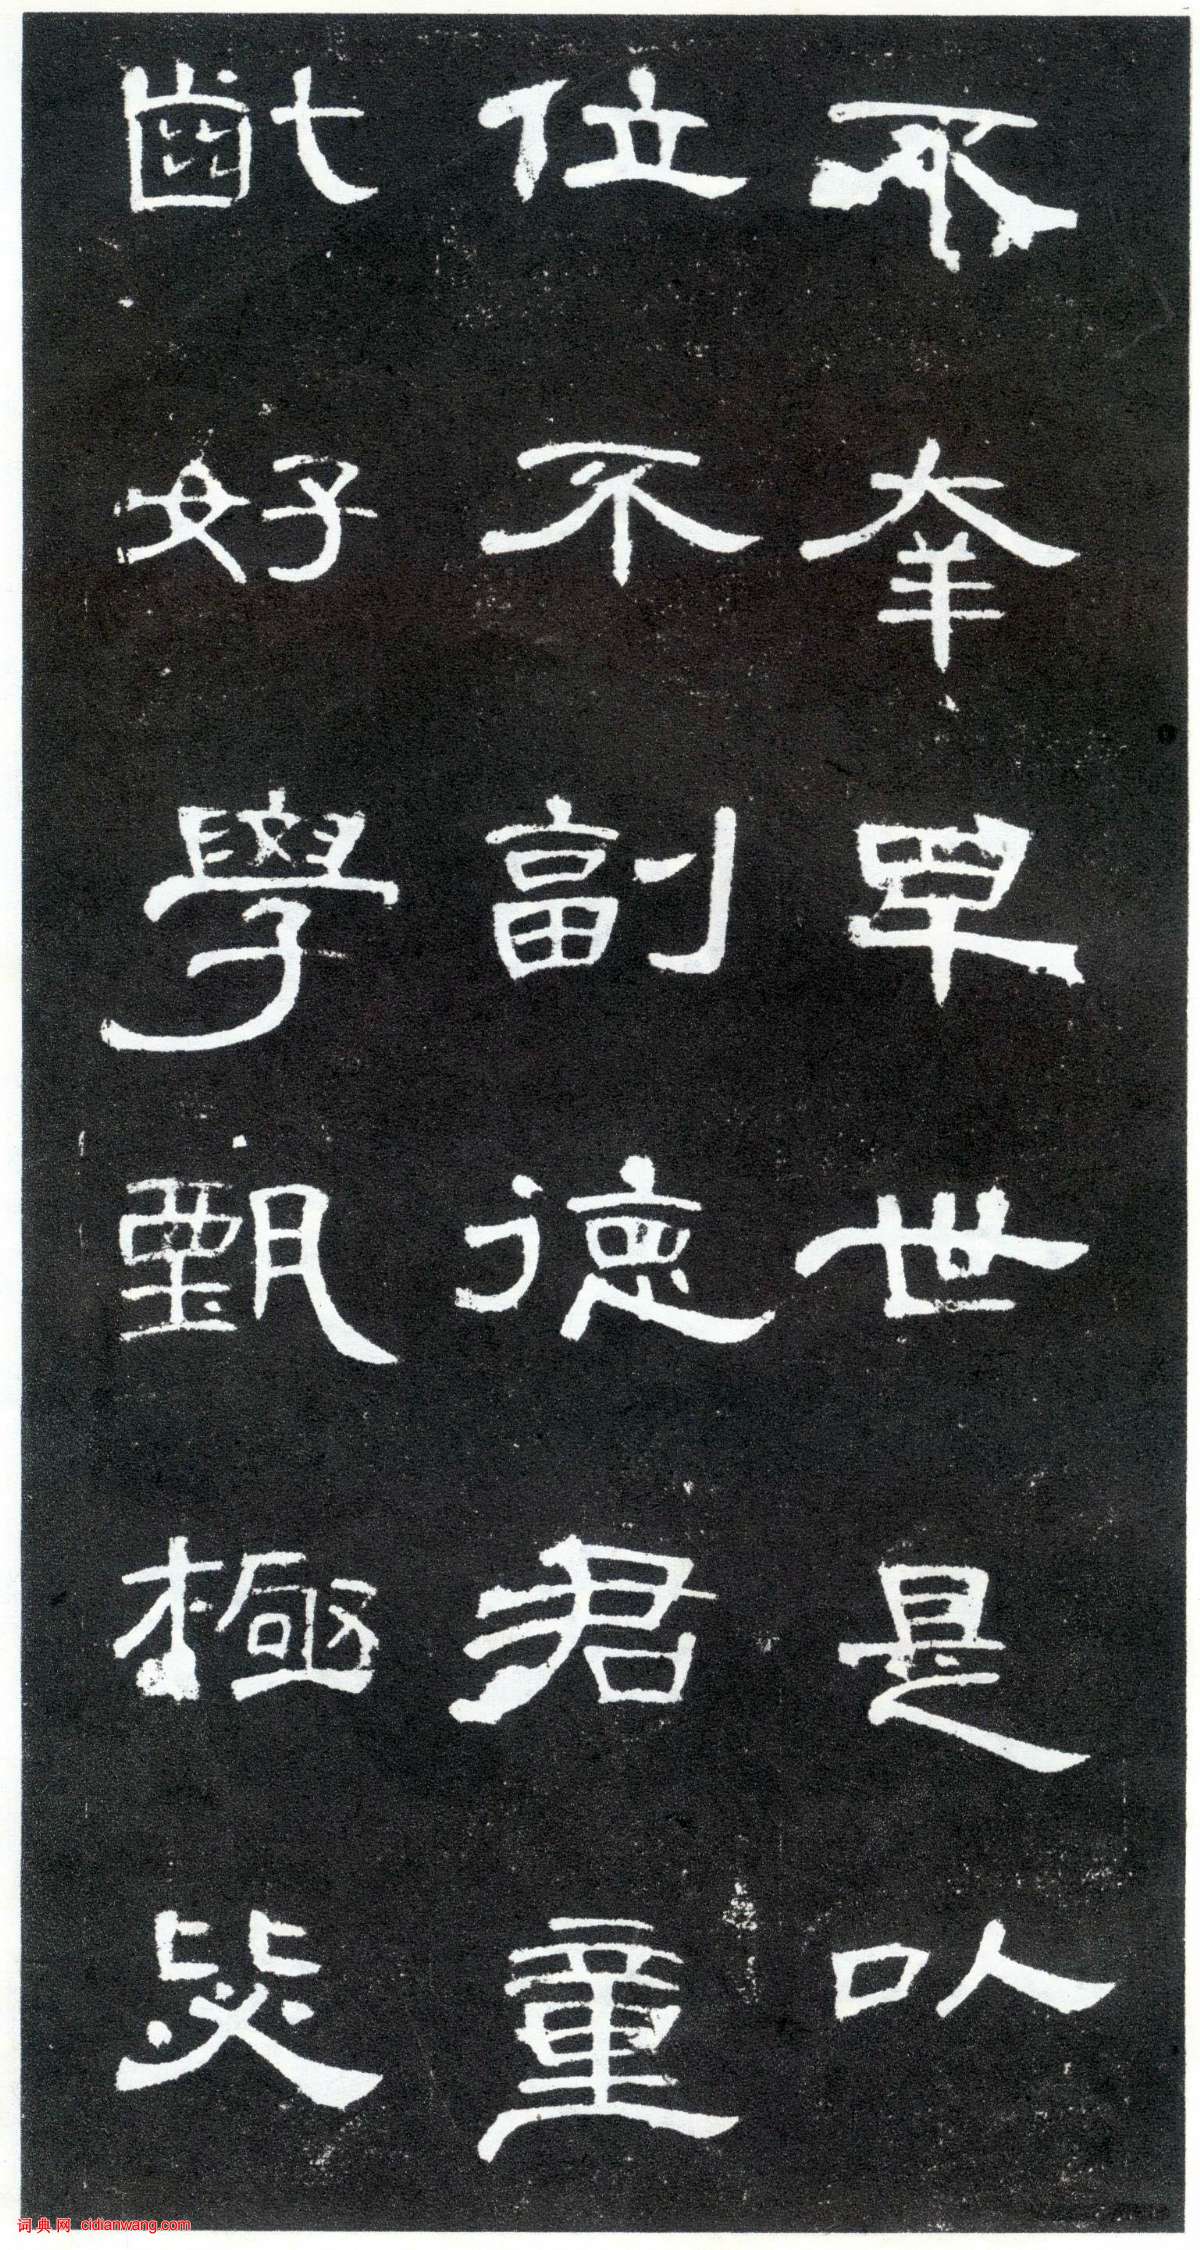 不幸早世是以
位不副德君童
齔好學甄極毖
词典网 cidianwang.com